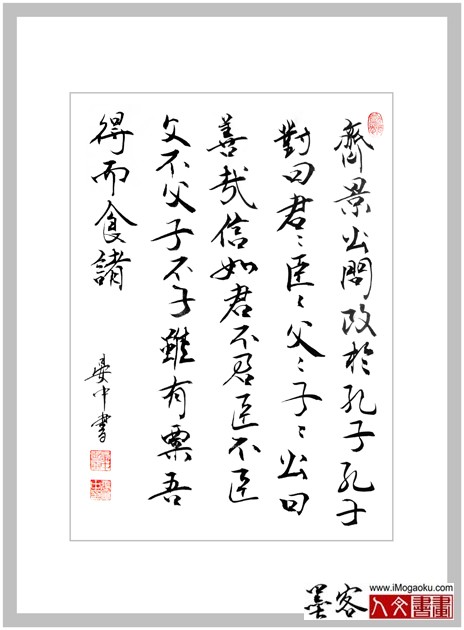 齊景公問政於孔子孔子
對曰君〻臣〻父〻子〻公曰
善哉信如君不君臣不臣
父不父子不子雖有粟吾
得而食諸
晏中書
墨客
www.iMogaoku.com
人文書畫